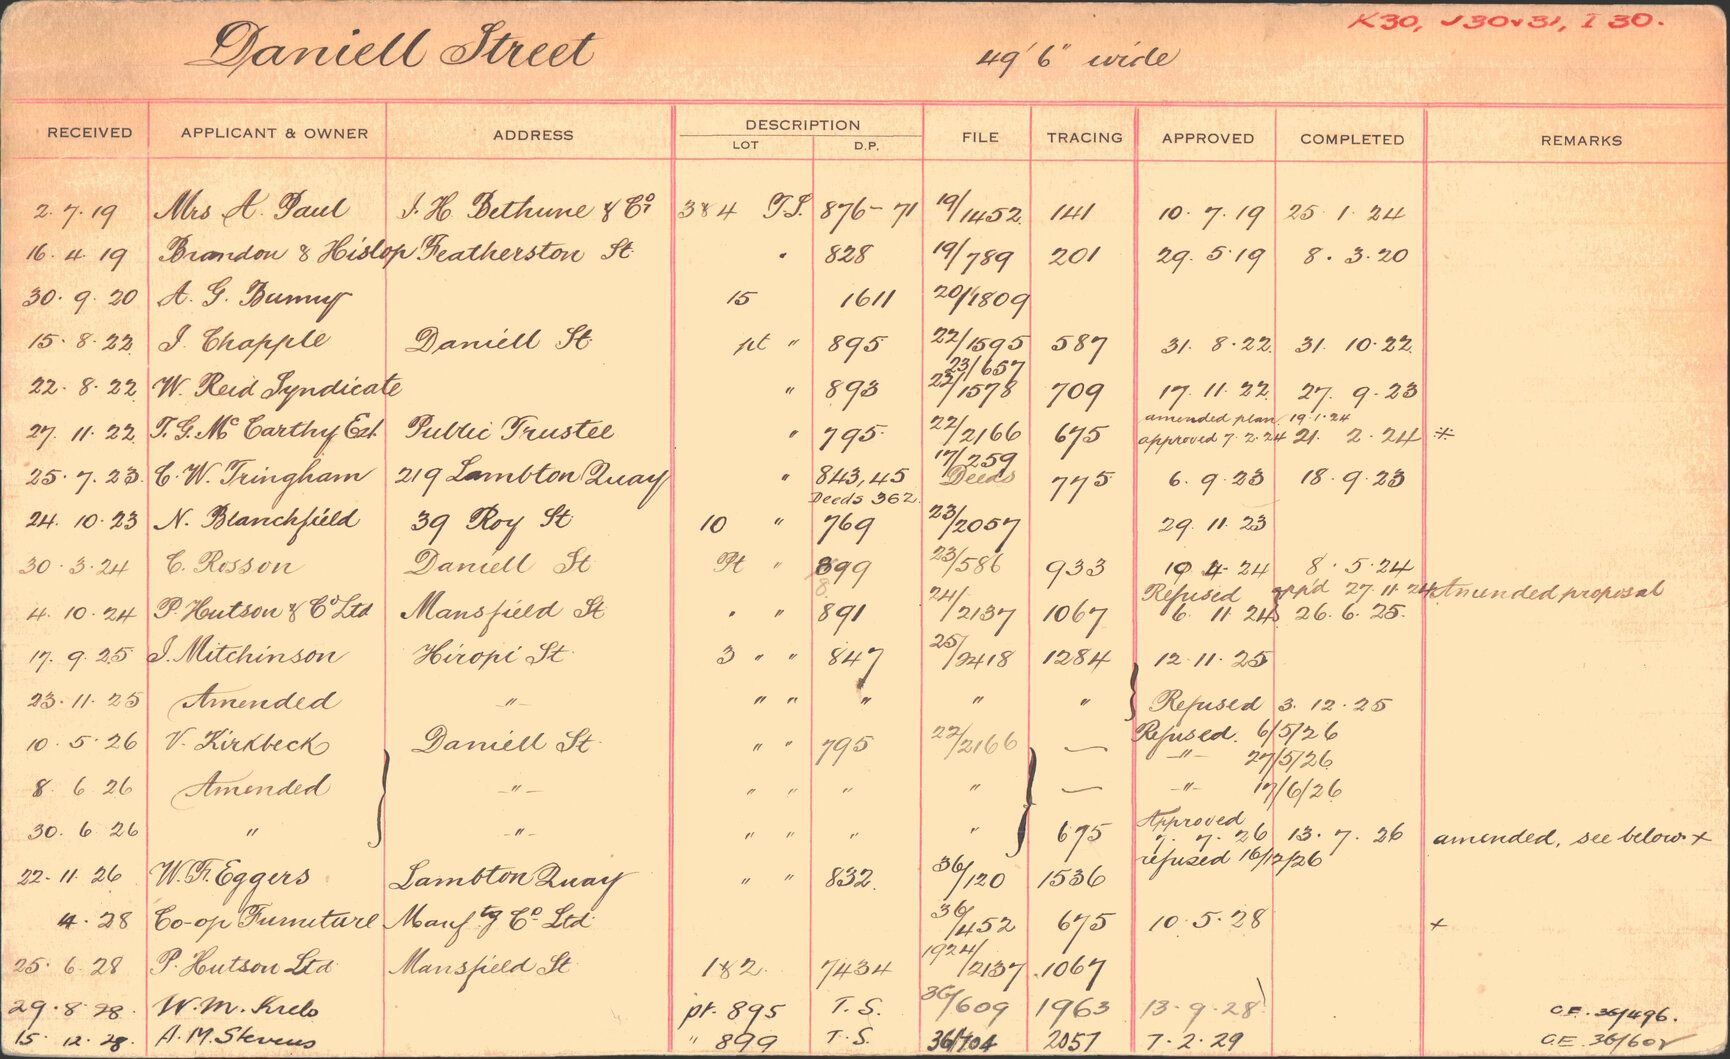 K30, J30&31, I 30.
Daniell Street 49' 6" wide
RECEIVED APPLICANT & OWNER ADDRESS DESCRIPTION FILE TRACING APPROVED COMPLETED REMARKS
LOT D.P.
2. 7. 19 Mrs A. Paul J. H Bethune & Co 384 T.S. 876-71 19/1452 141 10. 7. 19 25. 1. 24
16. 4. 19 Brandon & Hislop Featherston St " 828 19/789 201 29. 5. 19 8. 3. 20
30. 9. 20 A. G. Bunny 15 1611 20/1809
15. 8. 22 J. Chapple Daniell St. pt " 895 22/1595 587 31. 8. 22. 31. 10. 22.
23/657
22. 8. 22 W. Reid Syndicate " 893 22/1578 709 17. 11. 22. 27. 9. 23
amended plan 19.1.24
27. 11. 22. T. G. McCarthy Est. Public Trustee " 795. 22/2166 675 approved 7. 2. 24 21. 2. 24 *
17/259
25. 7. 23. C. W. Tringham 219 Lambton Quay " 843, 45 Deeds 775 6. 9. 23 18. 9. 23
Deeds 362.
24. 10. 23 N. Blanchfield 39 Roy St 10 " 769 23/2057 29. 11. 23
30. 3. 24 C. Rosson Daniell St Pt " 899 23/586 933 10 4. 24 8. 5. 24
8. Refused app'd 27. 11. 24 Amended proposal
4. 10. 24 P. Hutson & Co Ltd Mansfield St " " 891 24/2137 1067 6. 11. 24 26. 6. 25.
17. 9. 25 J. Mitchinson Hiropi St. 3 " " 847 25/2418 1284 12. 11. 25
23. 11. 25 Amended " " " " " " Refused 3. 12. 25
10. 5. 26 V. Kirkbeck Daniell St. " " 795 22/2166 — Refused. 6/5/26
-"- 27/5/26
8. 6. 26 Amended -"- " " " " — -"- 17/6/26
Approved
30. 6. 26 " -"- " " " " 675 7. 7. 26 13. 7. 26 amended, see below +
refused 16/12/26
22. 11. 26 W. F. Eggers Lambton Quay " " 832. 36/120 1536
4. 28 Co-op Furniture Manftg Co Ltd 36/452 675 10. 5. 28 +
25. 6. 28 P. Hutson Ltd Mansfield St 182. 7434 1924/2137 1067
29. 8. 28. W. M. Krebs pt. 895 T. S. 36/609 1963 13. 9. 28 C.F. 36/496.
15. 12. 28. A. M. Stevens " 899 T. S. 36/704 2057 7. 2. 29 C.F. 36/602